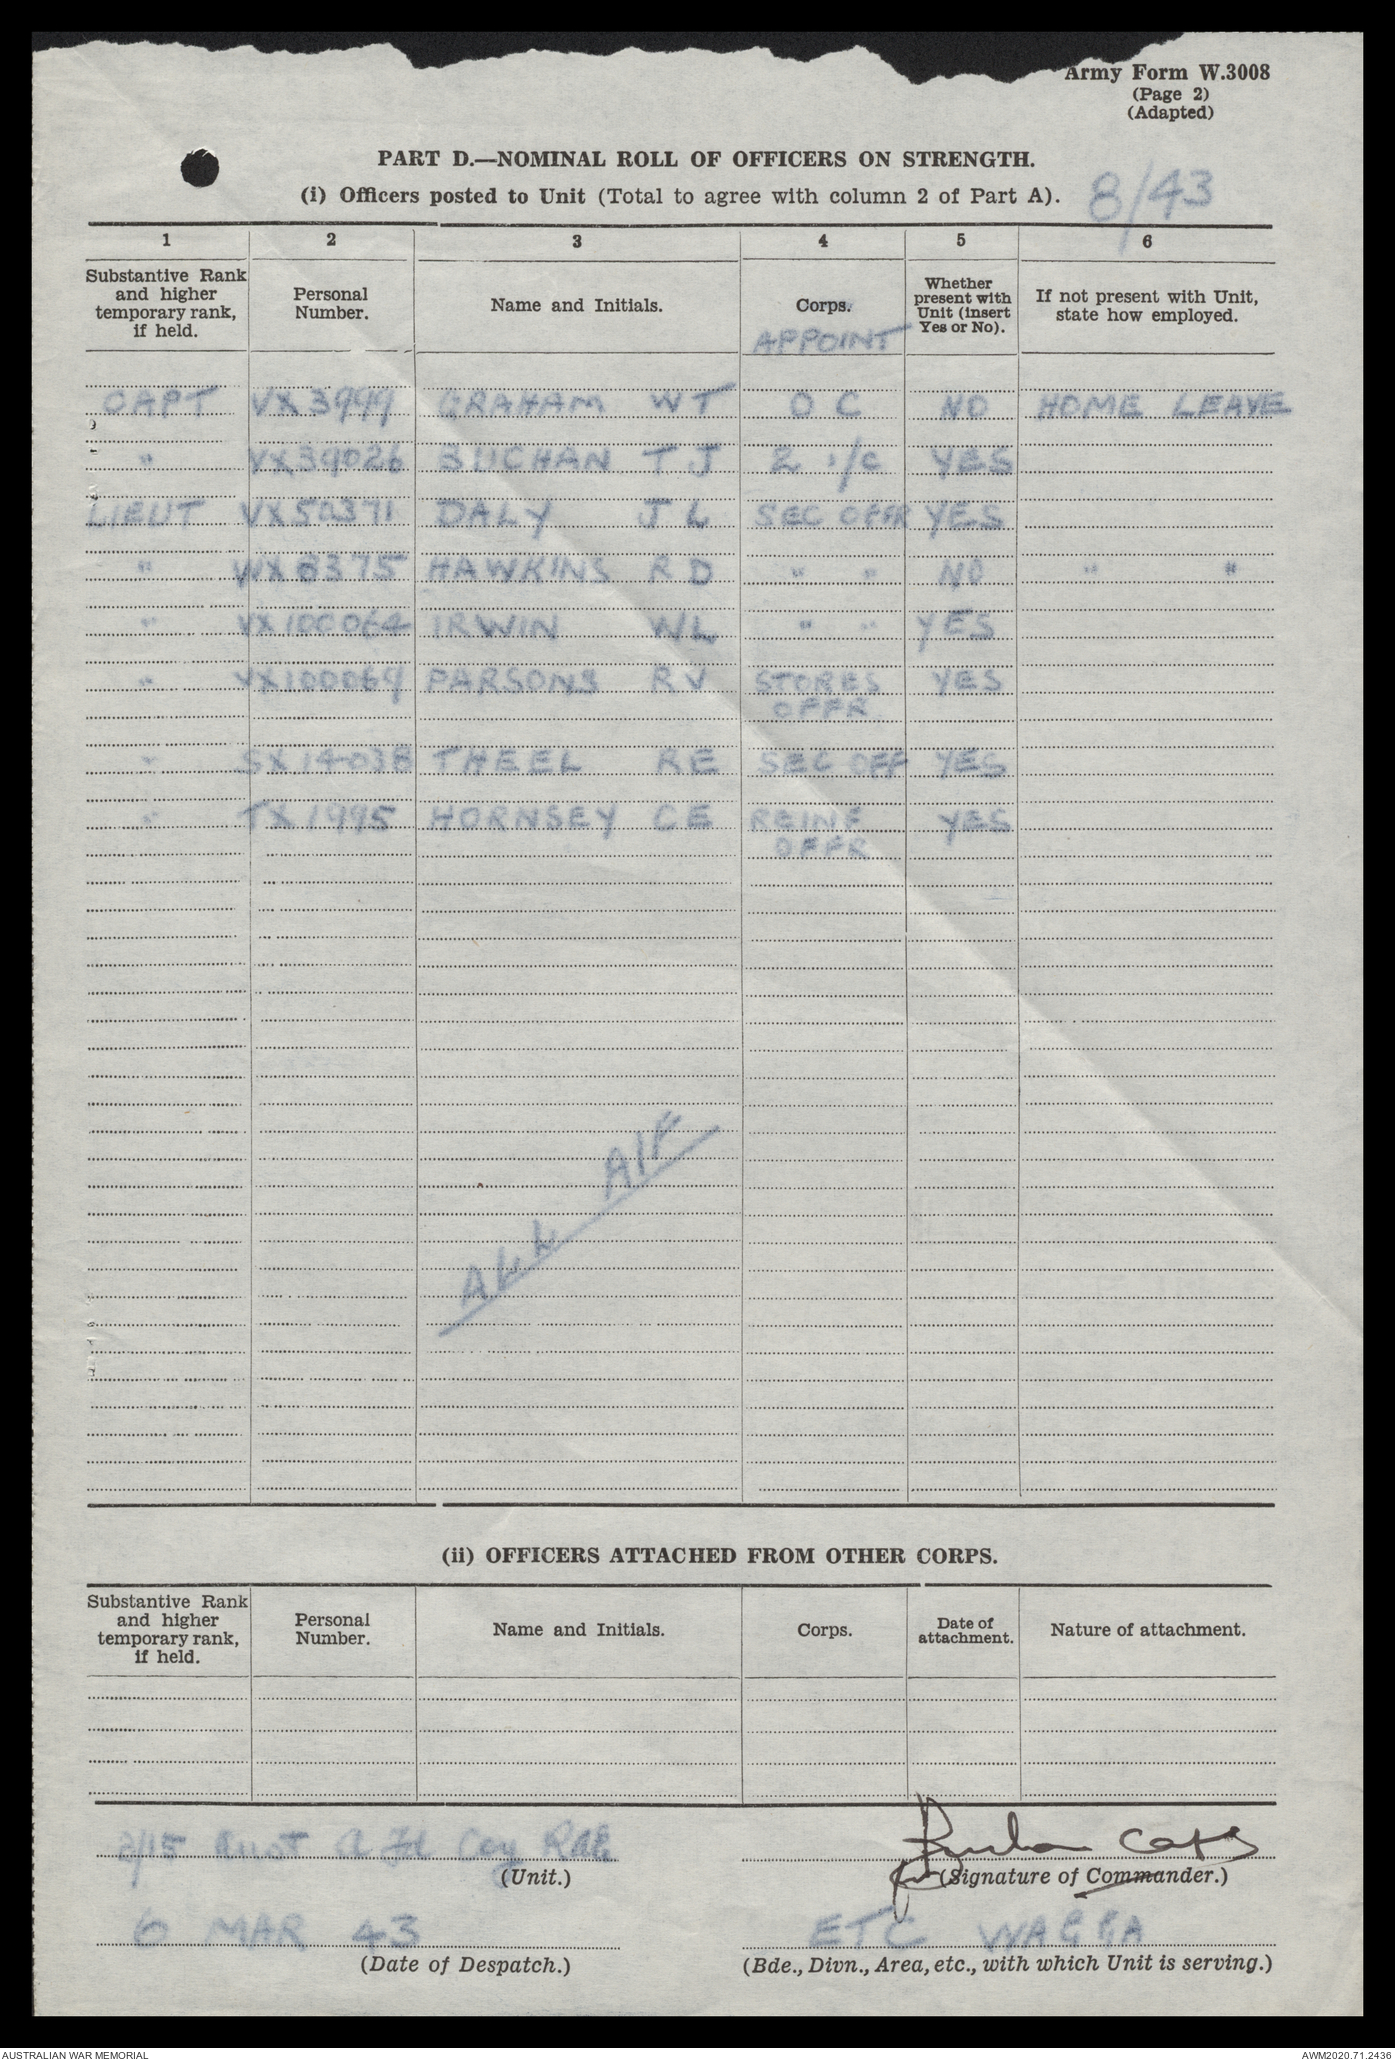 Army Form W.3008
(Page 2)
(Adapted)
PART D.—NOMINAL ROLL OF OFFICERS ON STRENGTH.
(i) Officers posted to Unit (Total to agree with column 2 of Part A).
8/43
1 2 3 4 5 6
Substantive Rank and higher temporary rank, if held. Personal Number. Name and Initials. Corps. APPOINT Whether present with Unit (insert Yes or No). If not present with Unit, state how employed.
CAPT VX3999 GRAHAM WT OC NO HOME LEAVE
" VX39026 BUCHAN TJ 2 i/c YES
LIEUT VX50371 DALY JL SEC OFFR YES
" WX8375 HAWKINS RD " " NO " "
" VX100064 IRWIN WL " " YES
" VX100069 PARSONS RV STORES OFFR YES
" SX14038 THEEL RE SEC OFF YES
" TX1995 HORNSEY CE REINF OFFR YES
ALL AIF
(ii) OFFICERS ATTACHED FROM OTHER CORPS.
Substantive Rank and higher temporary rank, if held. Personal Number. Name and Initials. Corps. Date of attachment. Nature of attachment.
2/15 Aust A Fd Coy RAE
Buchan Capt
(Unit.)
for (Signature of Commander.)
6 MAR 43
ETC WAGGA
(Date of Despatch.)
(Bde., Divn., Area, etc., with which Unit is serving.)
AUSTRALIAN WAR MEMORIAL
AWM2020.71.2436